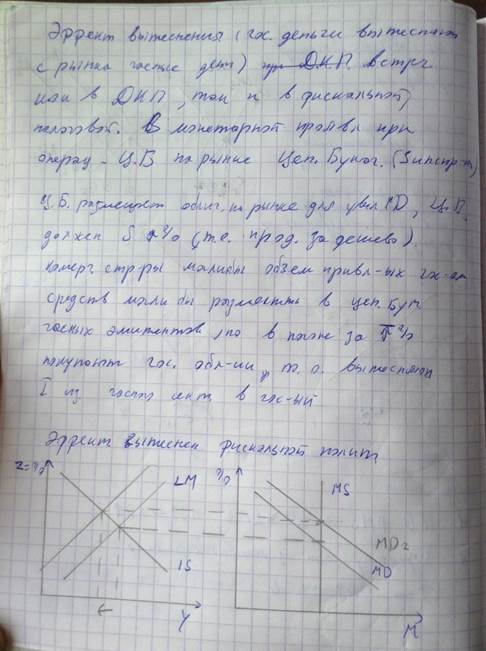 Эффект вытеснения (гос. деньги вытесняют
с рынка частные ден) встреч
как в ДКП, так и в фискальной
налоговой. В монетарной проявл при
операц - Ц.Б на рынке Цен. Бумаг.
Ц.Б. размещает облиг. на рынке для увел Ц.П.
должен % (т.е. прод. за дешево).
Комерч стр-ры могли бы объем привл-ых
средств могли бы разместить в цен. Бум
частных эмитентов, но в погоне за ↑%
покупают гос. обл-ии, т. о. вытесняют
I из частн в гос-ый
Эффект вытеснен фискальной полит
LM % MS
MD2
IS MD
Y M